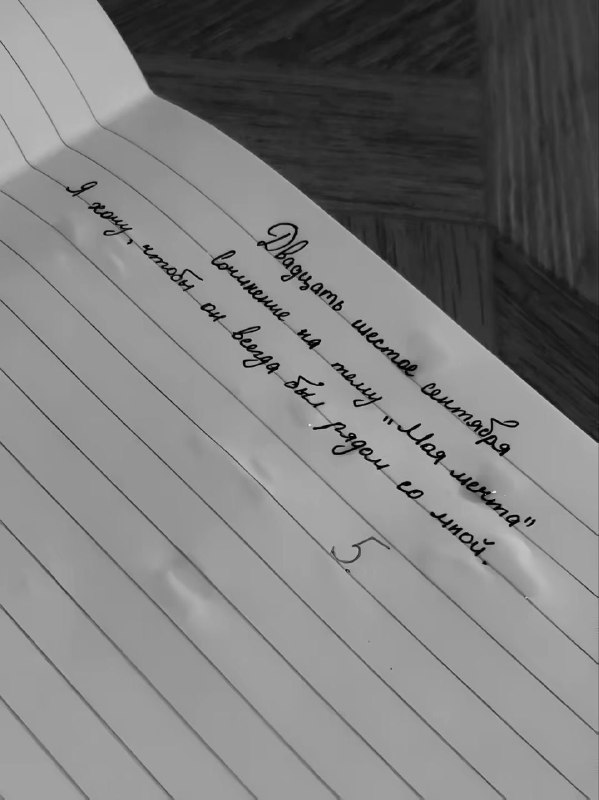 Двадцать шестое сентября
сочинение на тему "Моя мечта"
Я хочу, чтобы он всегда был рядом со мной.
5